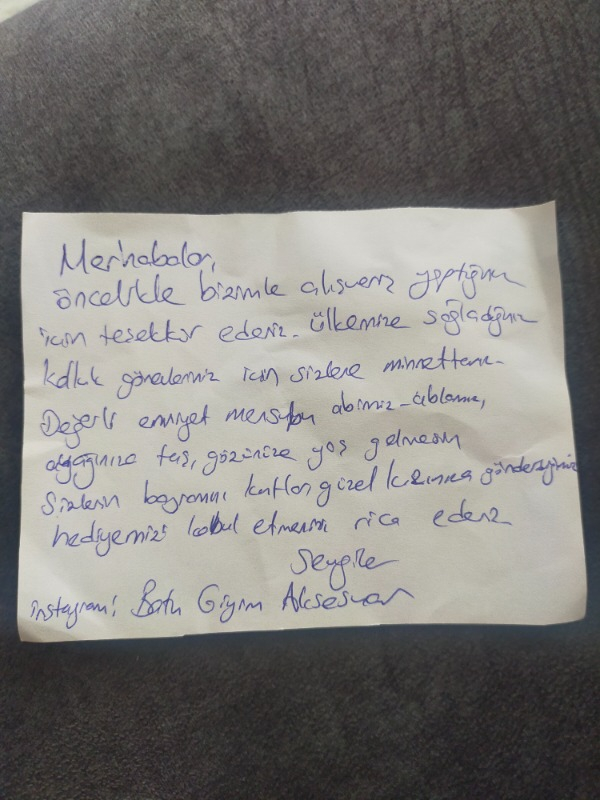 Merhabalar,
öncelikle bizimle alışveriş yaptığınız
için teşekkür ederiz. ülkemize sağladığınız
için sizlere minnettarız.
Değerli emniyet mensubu abimiz-ablamız,
ayağınıza taş, gözünüze yaş gelmesin
Sizlerin bayramını kutlar güzel kızınıza gönderdiğimiz
hediyemizi kabul etmenizi rica ederiz
Sevgiler
instagram: Batu Giyim Aksesuar